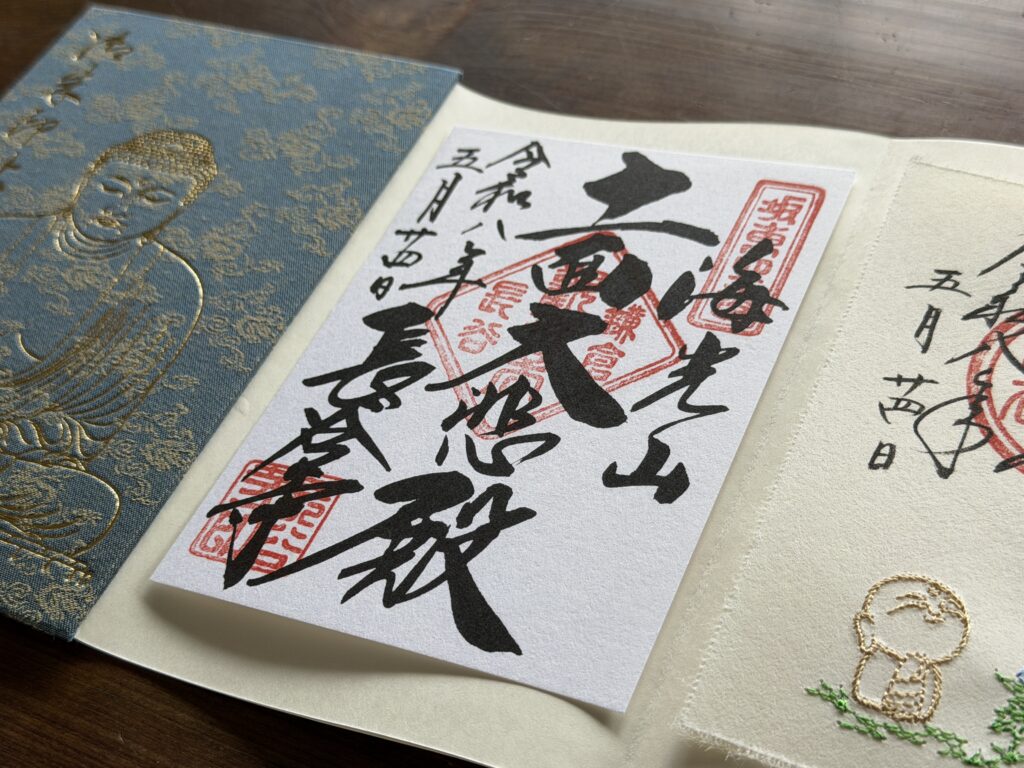 令和八年
五月廿四日
坂東
海光山
十一面大悲殿
鎌倉
長谷
令和八年
五月廿四日
長谷寺